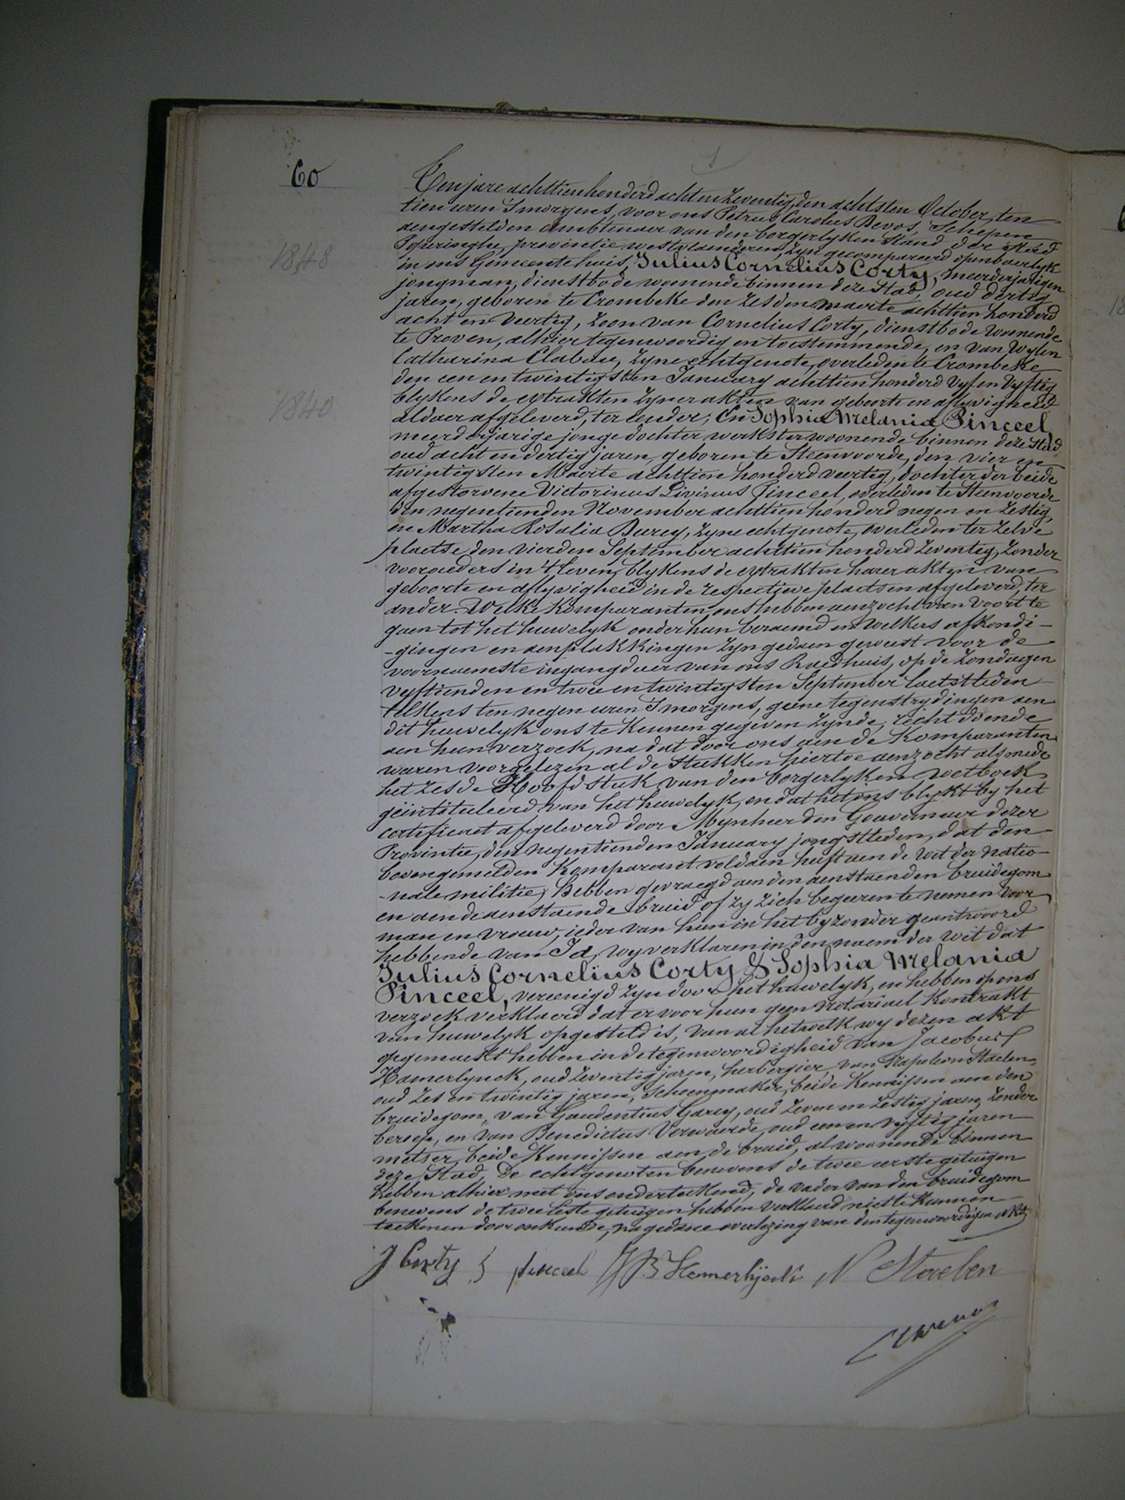 60
1848
1840
Ten jare achttien honderd acht en zeventig, den achtsten October, ten
tien uren 's morgens, voor ons Petrus Carolus Devos, Schepen
aengestelden ambtenaer van den borgerlyken stand der stad
Poperinghe, provintie westvlaenderen, zyn gecompareerd openbaerlyk
in ons Gemeentehuis, Julius Cornelius Corty, meerderjarigen
jongman, dienstbode woonende binnen deze Stad, oud dertig
jaren, geboren te Crombeke den zesden maerte achttien honderd
acht en veertig, zoon van Cornelius Corty, dienstbode woonende
te Proven, alhier tegenwoordig en toestemmende, en van wylen
Catharina Clabeue, zyne echtgenote, overleden te Crombeke
den een en twintigsten January achttien honderd vyf en vyftig
blykens de extrakten zyner akten van geboorte en aflyvigheid
aldaer afgeleverd, ter eender; En Sophia Melania Pinceel
meerderjarige jonge dochter, werkster woonende binnen deze Stad
oud acht en dertig jaren, geboren te Steenvoorde, den vier en
twintigsten Maerte achttien honderd veertig, dochter der beide
afgestorvene Victorinus Livinus Pinceel, overleden te Steenvoorde
den negentienden November achttien honderd negen en zestig,
en Martha Rosalia Durey, zyne echtgenote, overleden ter zelve
plaetse den vierden September achttien honderd zeventig, zonder
voorouders in 't leven, blykens de extrakten harer akten van
geboorte en aflyvigheid in de respectieve plaetsen afgeleverd, ter
ander. Welke Komparanten ons hebben aenzocht van voort te
gaen tot het huwelyk onder hun beraemd en welkers afkondi-
-gingen en aenplakkingen zyn gedaen geweest voor de
voornaemste ingangdeur van ons Raedhuis, op de zondagen
vyftienden en twee en twintigsten September laetstleden
telkens ten negen uren 's morgens, geene tegenstrydingen aen
dit huwelyk ons te kennen gegeven zynde, recht doende
aen hun verzoek, na dat door ons aen de Komparanten
waren voorgelezen al de stukken hiertoe aenzocht alsmede
het zesde Hoofdstuk van den borgerlyken wetboek
geïntituleerd van het huwelyk, en dat het ons blykt by het
certificaet afgeleverd door Mynheer den Gouverneur dezer
Provintie, den negentienden January jongstleden, dat den
bovengemelden Komparant voldaen heeft aen de wet der natio-
-nale militie, Hebben gevraegd aen den aenstaenden bruidegom
en aen de aenstaende bruid of zy zich begeeren te nemen voor
man en vrouw, ieder van hun in het byzonder geantwoord
hebbende van Ja, wy verklaren in den naem der wet dat
Julius Cornelius Corty & Sophia Melania
Pinceel, vereenigd zyn door het huwelyk, en hebben op ons
verzoek verklaerd dat er voor hun geen notariael kontrakt
van huwelyk opgesteld is, van al hetwelk wy dezen akt
gegemaekt hebben in de tegenwoordigheid van Jacobus
Hamerlynck, oud zeventig jaren, herbergier, van Napoleon Staelen
oud zes en twintig jaren, schoenmaker, beide Kennissen aen den
bruidegom, van Gaudentius Garey, oud zeven en zestig jaren, zonder
beroep, en van Benedictus Verwaerde, oud een en vyftig jaren
metser, beide Kennissen aen de bruid, al woonende binnen
deze Stad. De echtgenoten benevens de twee eerste getuigen
hebben alhier met ons onderteekend, de vader van den bruidegom
benevens de twee leste getuigen hebben verklaerd niet te kunnen
teekenen door onkunde, na gedane overlezing van den tegenwoordigen akt
J Corty S pinceel JB Hemerlijnck N Staelen